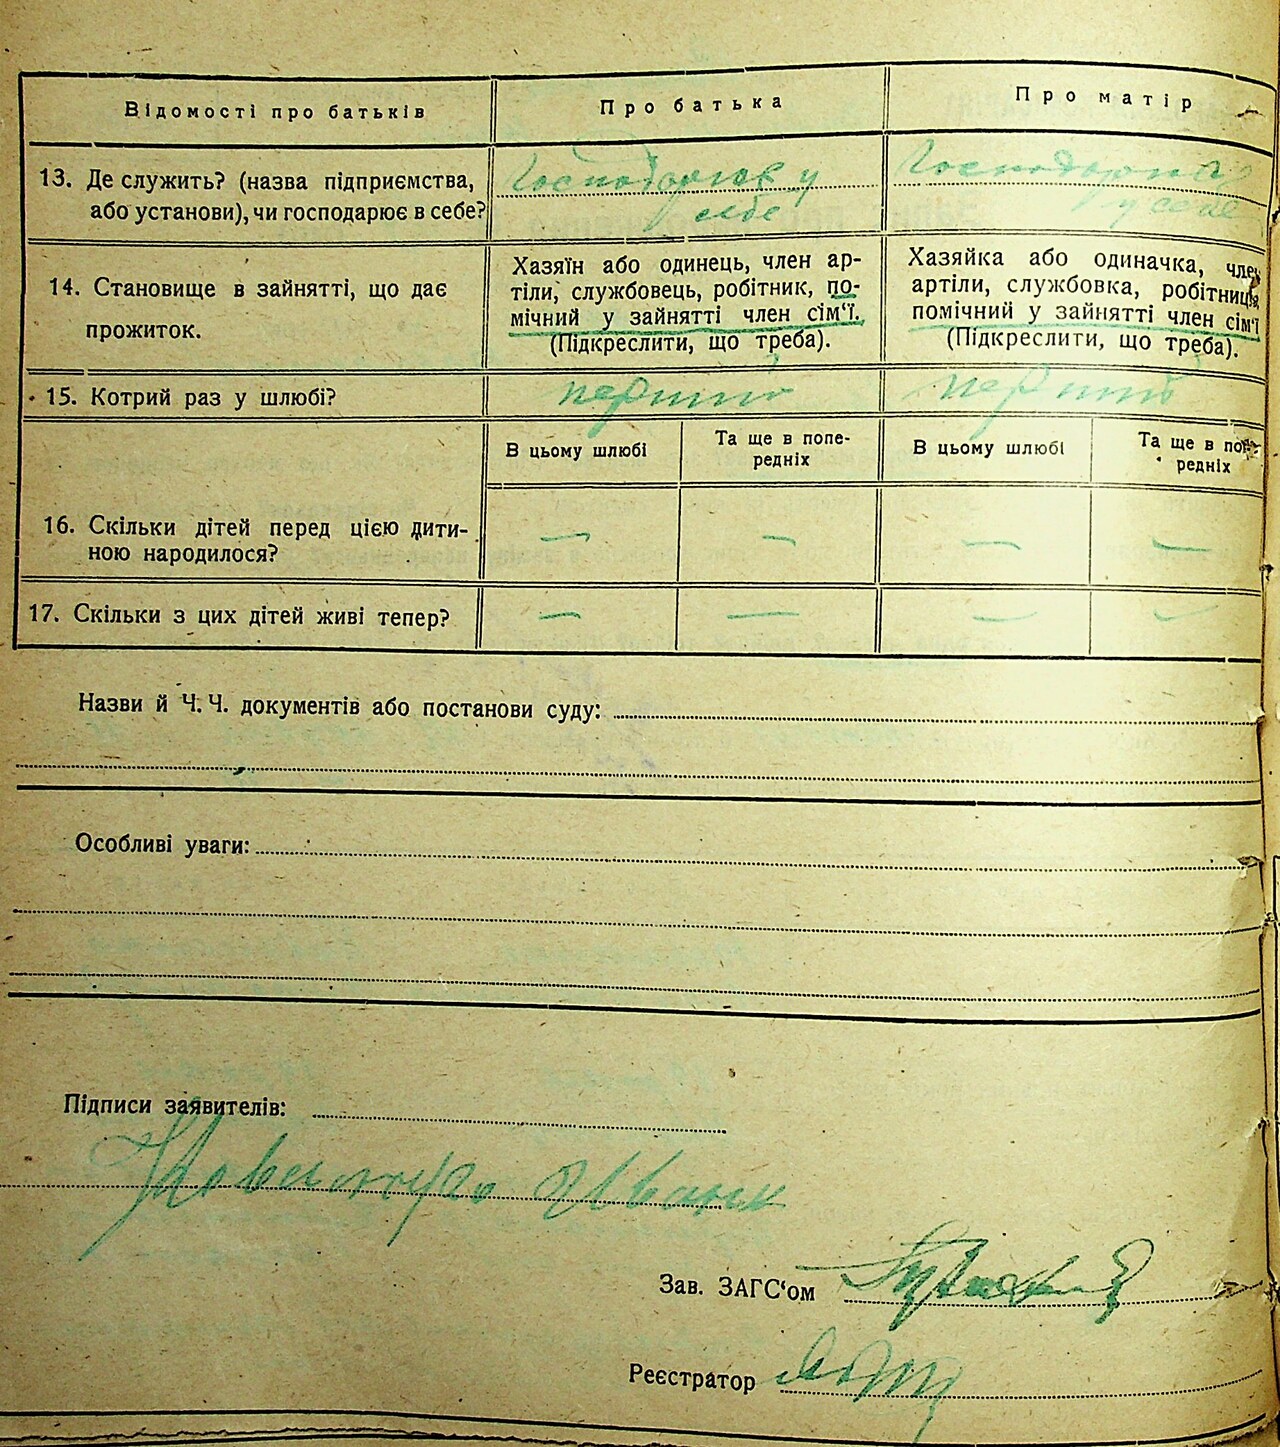 Відомості про батьків
Про батька
Про матір
13. Де служить? (назва підприємства,
або установи), чи господарює в себе?
Господорює у
себе
Господорює
у себе
14. Становище в зайнятті, що дає
прожиток.
Хазяїн або одинець, член ар-
тілі, службовець, робітник, по-
мічний у зайнятті член сім‘ї.
(Підкреслити, що треба).
Хазяйка або одиначка, член
артіли, службовка, робітниця,
помічний у зайнятті член сім‘ї
(Підкреслити, що треба).
15. Котрий раз у шлюбі?
перший
перший
В цьому шлюбі
Та ще в попе-
редніх
В цьому шлюбі
Та ще в попе-
редніх
16. Скільки дітей перед цією дити-
ною народилося?
— — — —
17. Скільки з цих дітей живі тепер?
— — — —
Назви й Ч. Ч. документів або постанови суду:
Особливі уваги:
Підписи заявителів:
Зав. ЗАГС‘ом
Реєстратор